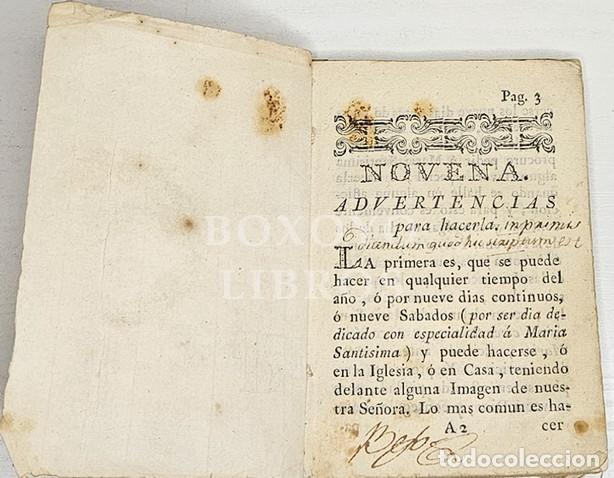 Pag. 3
NOVENA.
ADVERTENCIAS
para hacerla. inprimis
LA primera es, que se puede
hacer en qualquier tiempo del
año, ó por nueve dias continuos,
ó nueve Sabados (por ser dia de-
dicado con especialidad á Maria
Santisima) y puede hacerse, ó
en la Iglesia, ó en Casa, teniendo
delante alguna Imagen de nues-
tra Señora. Lo mas comun es ha-
A2 cer
todocoleccion